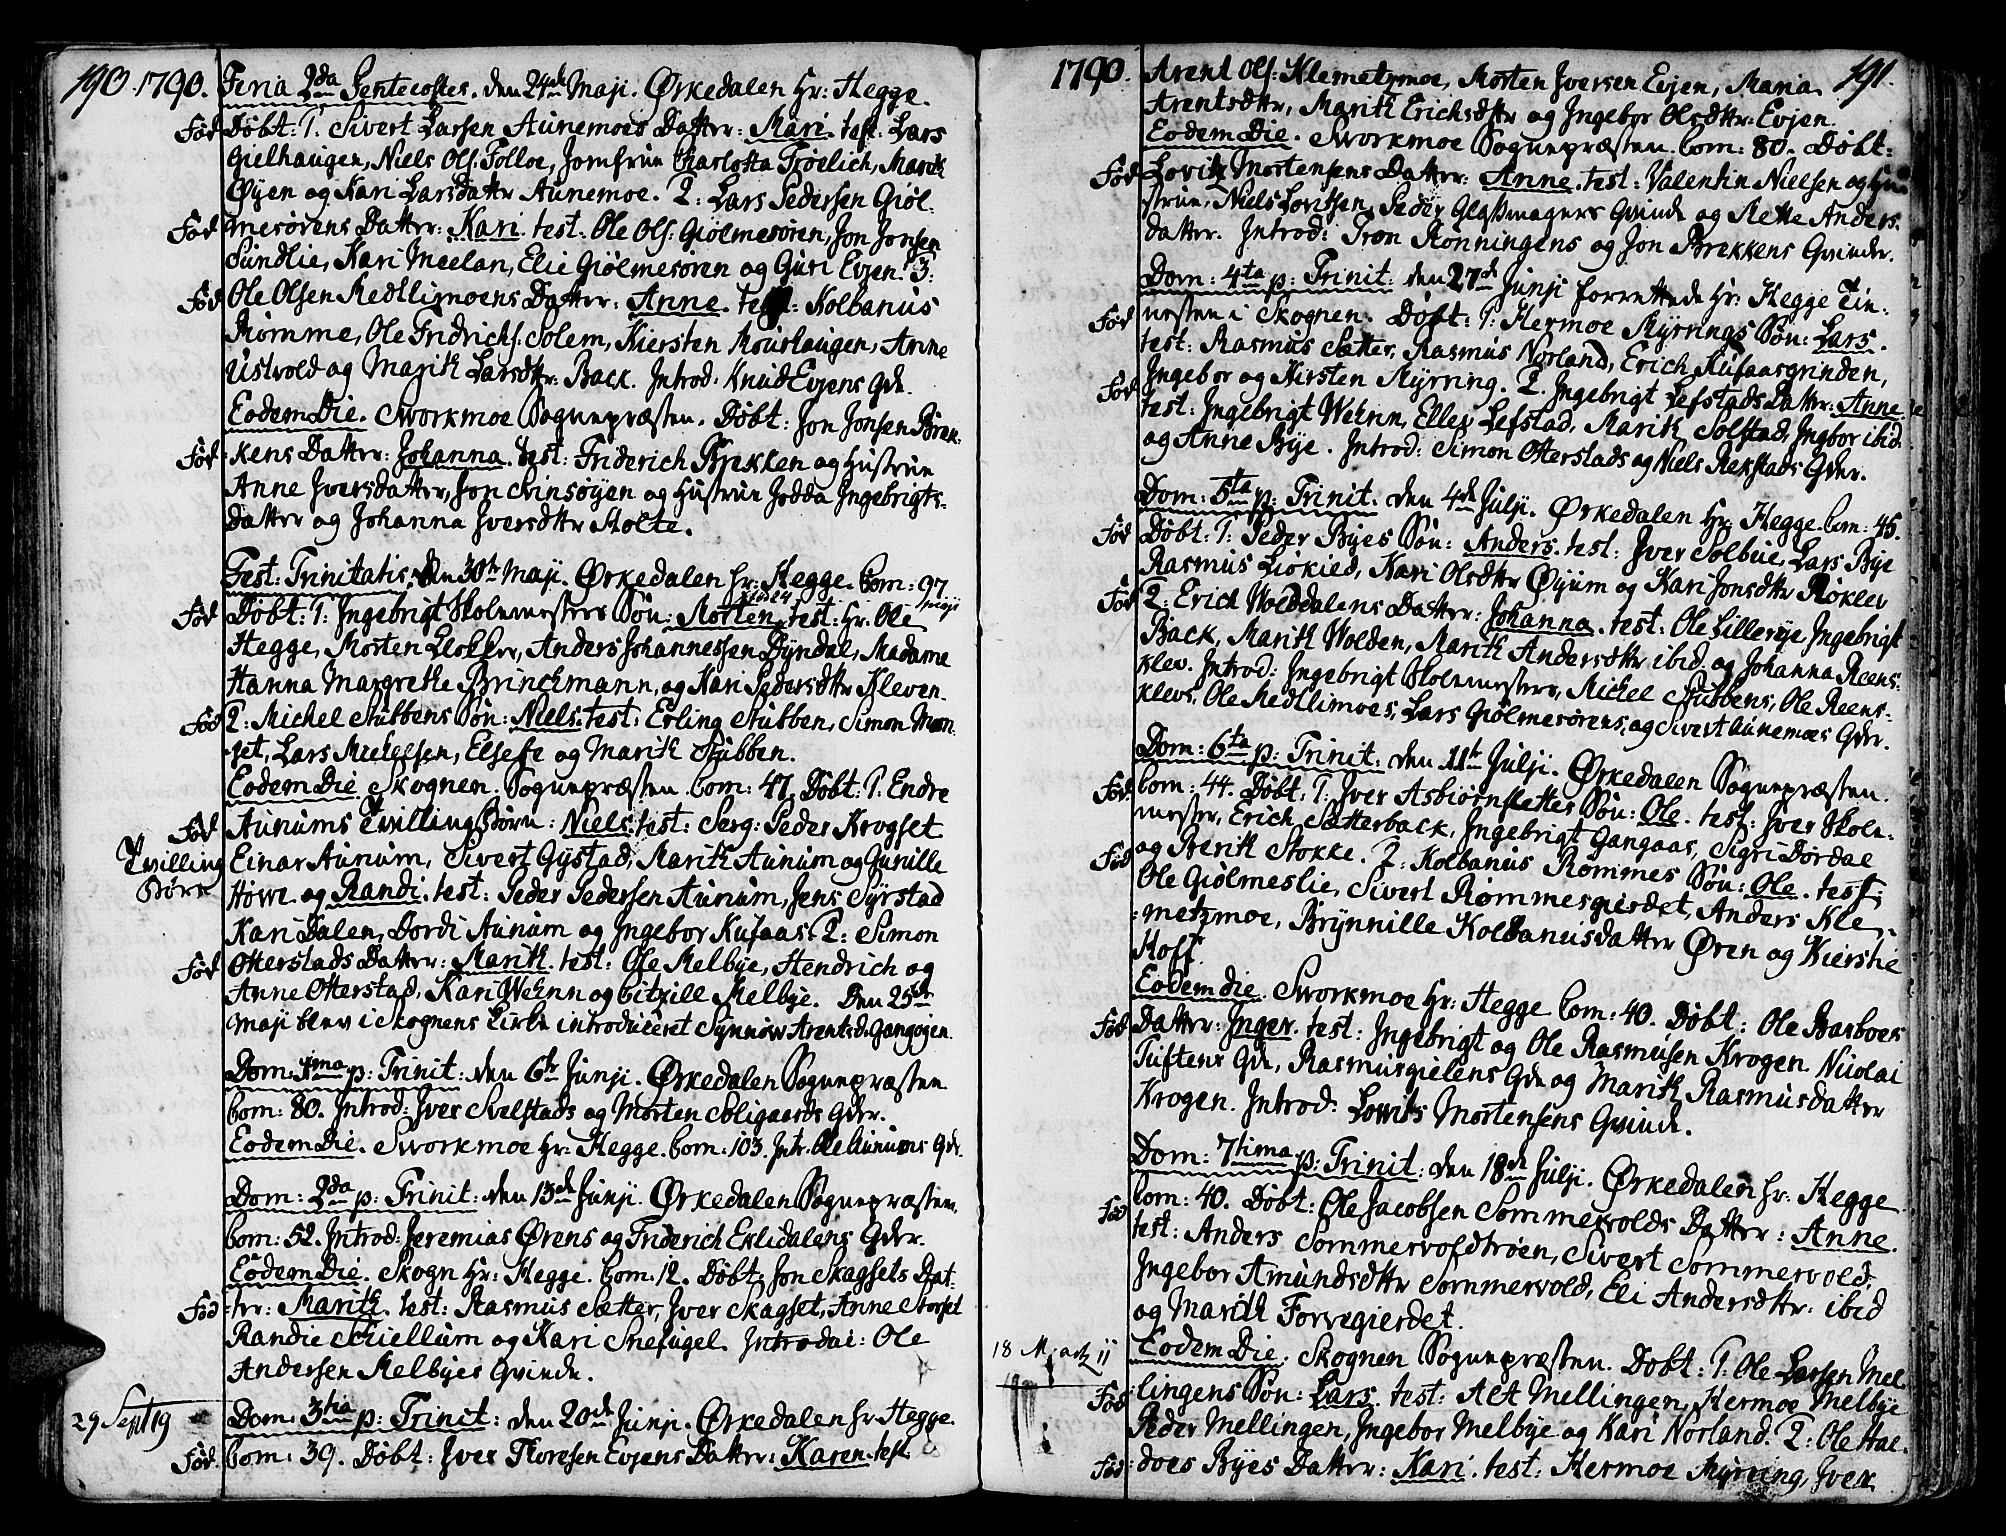 190. 1790. Feria 2da Pentecostes. den 24de Maji. Ørkedalen Hr: Hegge.
Fød Døbt: 1. Sivert Larsen Aunemoes Datter: Mari. test. Lars
Gielhaugen, Niels Ols: Folloe, Jomfrue Charlotta Frøelich, Marith
Øyen og Kari Larsdattr Aunemoe. 2: Lars Pedersen Giøl-
Fød mesørens Datter: Kari. test: Ole Ols: Giølmesøren, Jon Jonsen
Sundlie, Kari Meelan, Elie Giølmesøren og Guri Evjen. 3:
Fød Ole Olsen Redllimoens Datter: Anne. test: Kolbanus
Rømme, Ole Fridrichs. Solem, Kiersten Mourhaugen, Anne
Ustvold og Marith Larsdtr: Back. Introd: Knud Evjens Qde.
Eodem Die. Sworkmoe Sognepræsten. Døbt: Jon Jonsen Brek-
Fød kens Datter: Johanna. test: Friderich Brekken og Hustrue
Anne Iversdatter, Jon Svinsøyen og Hustrue Jodda Ingebrigts-
datter og Johanna Iversdtr Stolte.
Fest: Trinitatis. den 30te Maji. Ørkedalen Hr: Hegge. Com: 97.
Fød Døbt: 1: Ingebrigt Skolemesters Søn: Morten test: Hr. Ole
Hegge, Morten Clokker, Anders Johannessen Dyndal, Madame
Hanna Margrethe Brinchmann, og Kari Pedersdtr Kleven.
Fød 2: Michel Stubbens Søn: Niels. test: Erling Stubben, Simon Mon-
set, Lars Michelsen, Elsefe og Marith Stubben.
Eodem Die Skognen. Sognepræsten. Com: 47. Døbt: 1. Endre
Fød Aunums Tvillingbørn: Niels. test: Serg: Peder Krogset
Tvilling Einar Aunum, Sivert Gystad, Marith Aunum og Gunille
Børn Howe. og Randi. test: Peder Pedersen Aunum, Jens Syrstad
Kari Dalen, Dordi Aunum og Ingebor Kufaas. 2: Simon
Fød Otterstads Datter: Marith. test: Ole Melbye, Hendrich og
Anne Otterstad, Kari Wehnn og Citzille Melbye. Den 25de
Maji blev i Skognens Kirke introduceret Synnøv Arentsd: Gangøien.
Dom: 1ma p: Trinit: den 6te Junji. Ørkedalen Sognepræsten
Com: 80. Introd: Iver Svelstads og Morten Soligaards Qder.
Eodem Die. Sworkmoe Hr: Hegge. Com: 103. Intr: Ole Aunums Qde.
Dom: 2da p: Trinit: den 13de Junji. Ørkedalen Sognepræsten.
Com: 52. Introd: Jeremias Ørens og Friderich Eklidalens Qder.
Eodem Die. Skogn Hr: Hegge. Com: 12. Døbt: Jon Skagsets Dat-
Fød ter: Marith. test: Rasmus Sætter, Iver Skagset, Anne Storset
Randie Skiellum og Kari Snefugel. Introduc: Ole
Andersen Melbyes Qvinde.
29 Sept 19 Dom: 3tia p: Trinit: den 20de Junji. Ørkedalen Hr Hegge.
Fød. Com: 39. Døbt: Iver Thoresen Evjens Datter: Karen. test
1790. Arent Ols: Klemetzmoe, Morten Iversen Evjen, Maria 191.
Arentsdtr, Marith Erichsdtr og Ingebor Olsdtr: Evjen.
Eodem Die. Sworkmoe Sognepræsten. Com: 80. Døbt:
Fød Lovitz Mortensens Datter: Anne. test: Valentin Nielsen og Hu-
strue, Niels Lovitsen, Peder Glasmagers Qvinde og Mette Anders-
datter. Introd: Tron Rønningens og Jon Brekkens Qvinder.
Dom: 4ta p: Trinit: den 27de Junji forrettede Hr: Hegge Tie-
Fød nesten i Skognen. Døbt: 1: Hermoe Myrrings Søn: Lars.
test: Rasmus Sætter, Rasmus Norland, Erich Kufaasgrinden,
Ingebor og Kirsten Myrring. 2. Ingebrigt Lefstads Datter: Anne.
Fød test: Ingebrigt Wehnn, Ellev Lefstad, Marith Solstad, Ingbor ibid:
og Anne Bye. Introd: Simon Otterstads og Niels Rekstads Qder.
Dom: 5ta p: Trinit. den 4de Julji. Ørkedalen Hr: Hegge. Com: 45.
Fød Døbt: 1: Peder Byes Søn: Anders. test: Iver Solbue, Lars Bye
Rasmus Liøkied, Kari Olsdtr Øyum og Kari Jonsdtr Røklev
Fød 2: Erich Wolddalens Datter: Johanna. test: Ole Lillerye, Ingebrigt
Back, Marith Wolden, Marith Andersdtr ibid. og Johanna Reens-
klev. Introd: Ingebrigt Skolemesters, Michel Stubbens, Ole Reens-
klevs, Ole Redllimoes, Lars Giølmesørens, og Sivert Aunemoes Qder.
Dom: 6ta p: Trinit: den 11te Julji. Ørkedalen Sognepræsten.
Fød Com: 44. Døbt: 1: Iver Asbiørnslettes Søn: Ole. test: Iver Skole-
mester, Erich Sætterback, Ingebrigt Gangaas, Sigri Dørdal
Fød og Berith Stokke. 2: Kolbanus Rømmes Søn: Ole. test:
Ole Giølmeslie, Sivert Rømmesgierdet, Anders Kle-
metzmoe, Brynnille Kolbanusdatter Øren og Kierstie
Hoff.
Eodem die. Sworkmoe Hr: Hegge Com: 40. Døbt: Ole Barboes
Fød Datter: Inger. test: Ingebrigt og Ole Rasmusen Krogen. Nicolai
Tuftens Qde, Rasmusgielens Qde og Marith Rasmusdatter
Krogen. Introd: Lowits Mortensens Qvinde.
Dom: 7tima p: Trinit: den 18de Julji. Ørkedalen Hr: Hegge
Fød Com: 40. Døbt: Ole Jacobsen Sommervolds Datter: Anne.
test: Anders Sommervoldtrøen, Sivert Sommervold,
Ingebor Amundsdtr Sommervold, Eli Andersdtr: ibid
og Marith Forvegierdet.
18 Eodem Die. Skognen Sognepræsten. Døbt: 1. Ole Larsen Mel-
Fød lingens Søn: Lars. test: Alt Mellingen, Hermoe Melbye
Peder Mellingen, Ingebor Melbye og Kari Norland. 2: Ole Hal-
Fød does Byes Datter: Kari. test: Hermoe Myrring, Iver